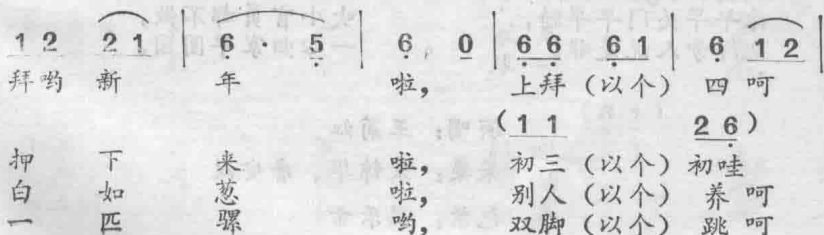 1 2 2 1 | 6 · 5 | 6 0 | 6 6 6 1 | 6 1 2 |
拜哟 新 年 啦， 上拜（以个） 四 呵
（1 1 2 6）
押 下 来 啦， 初三（以个） 初哇
白 如 葱 啦， 别人（以个） 养 呵
一 匹 骡 哟， 双脚（以个） 跳 呵